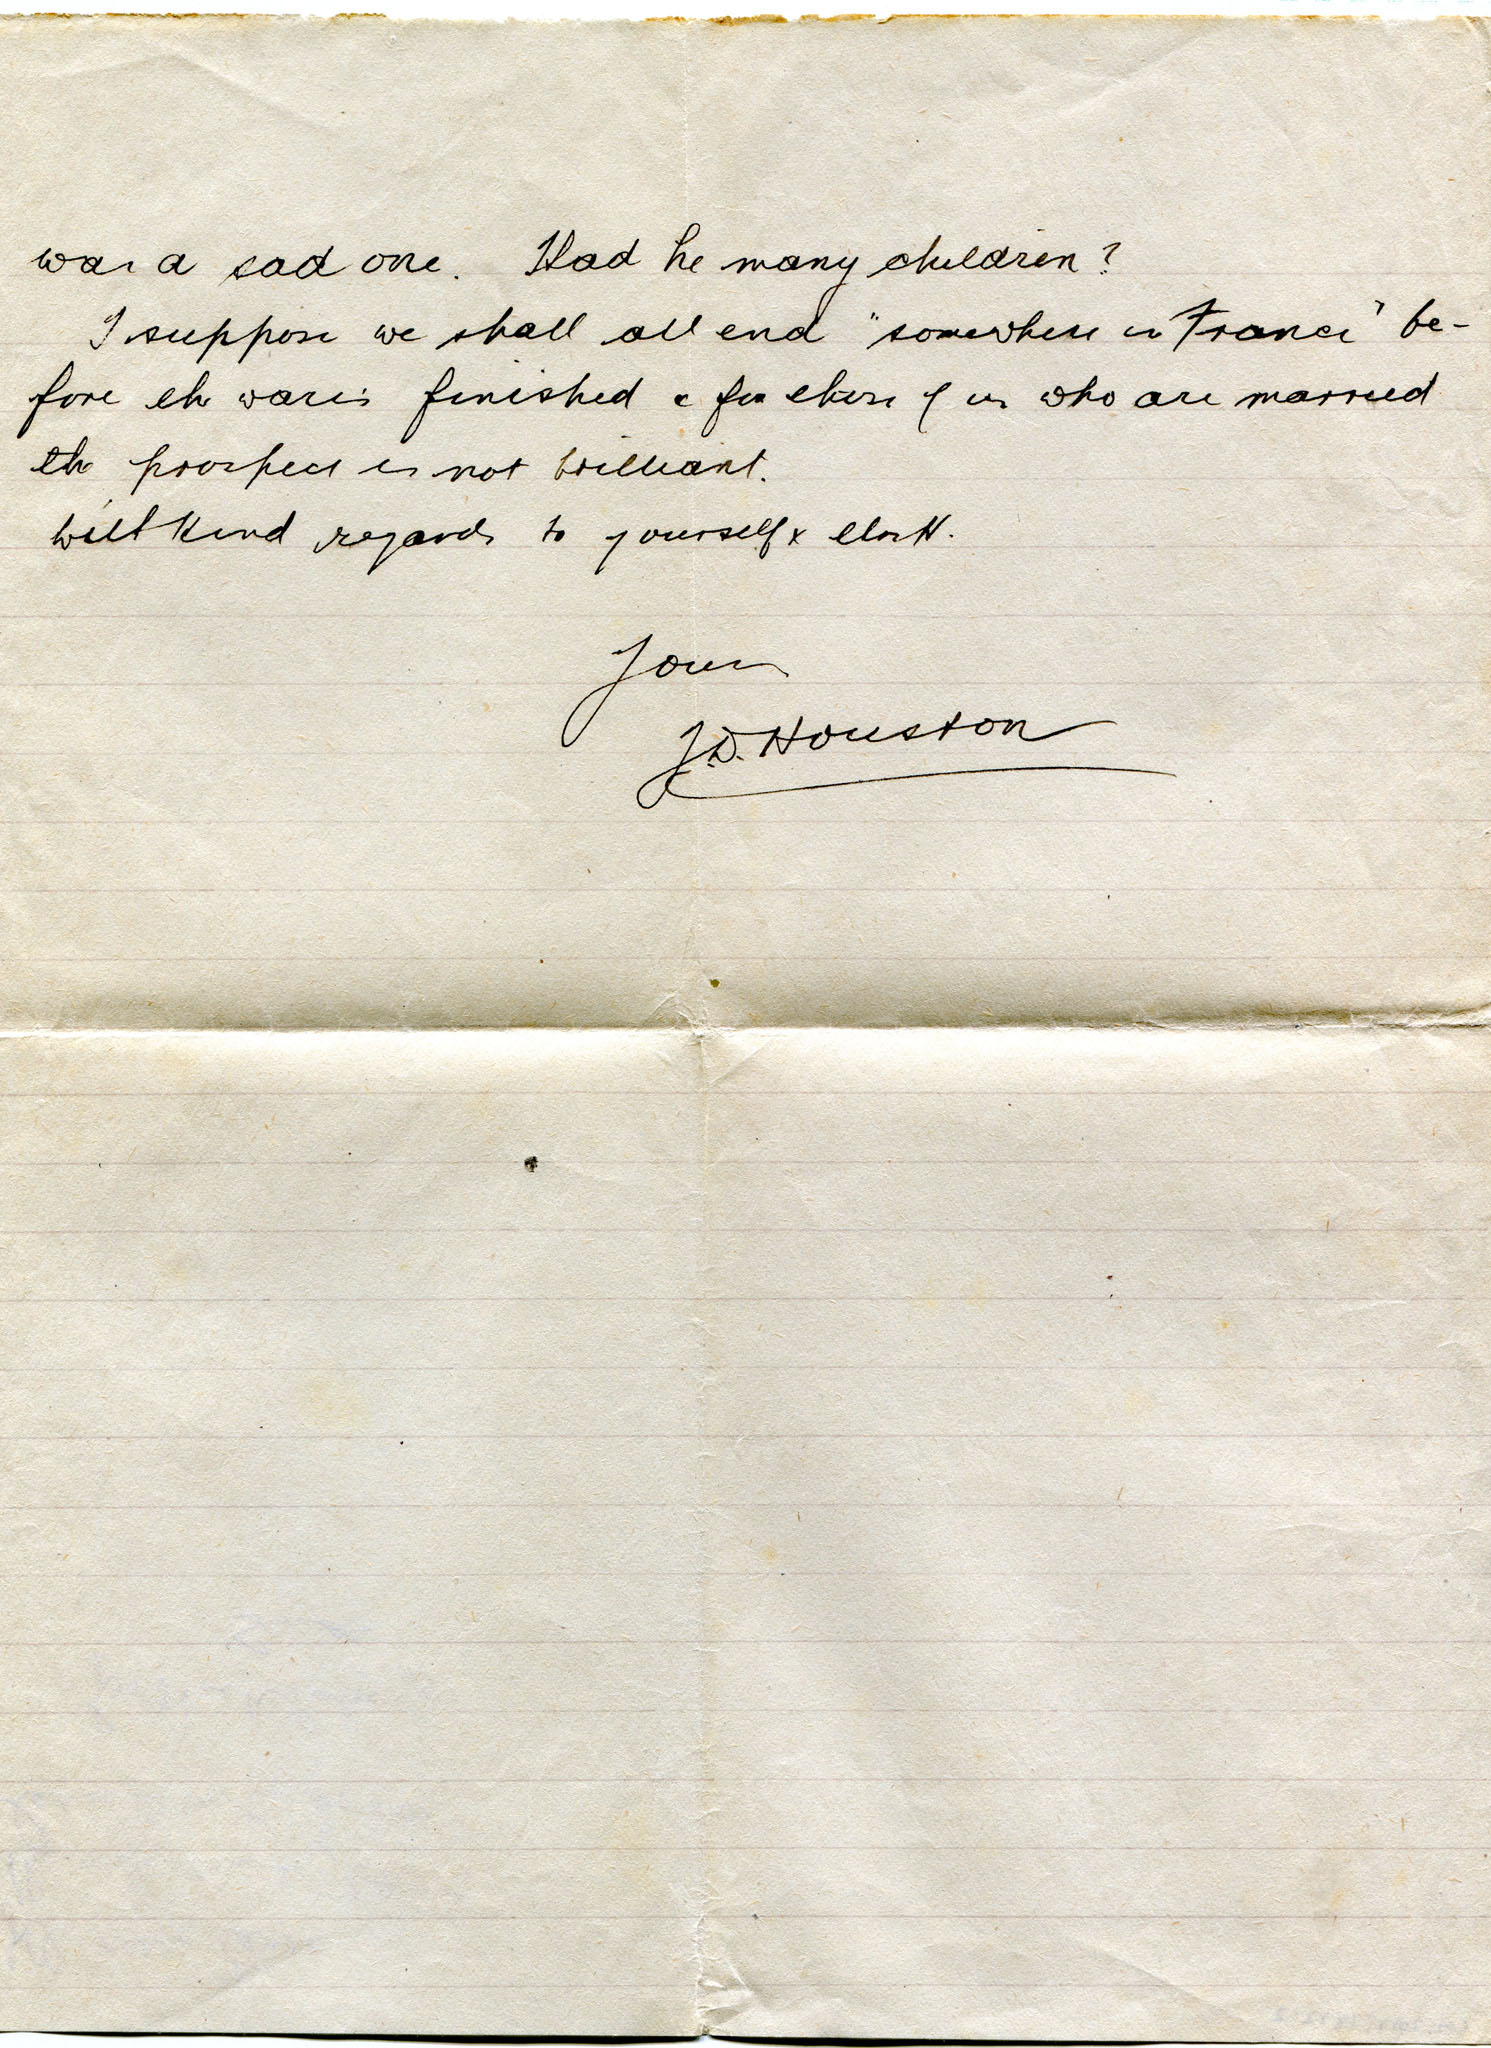 was a sad one. Had he many children?
I suppose we shall all end "somewhere in France" be-
fore the war is finished & for those of us who are married
the prospect is not brilliant.
With kind regards to yourself &
Yours
J.D. Houston